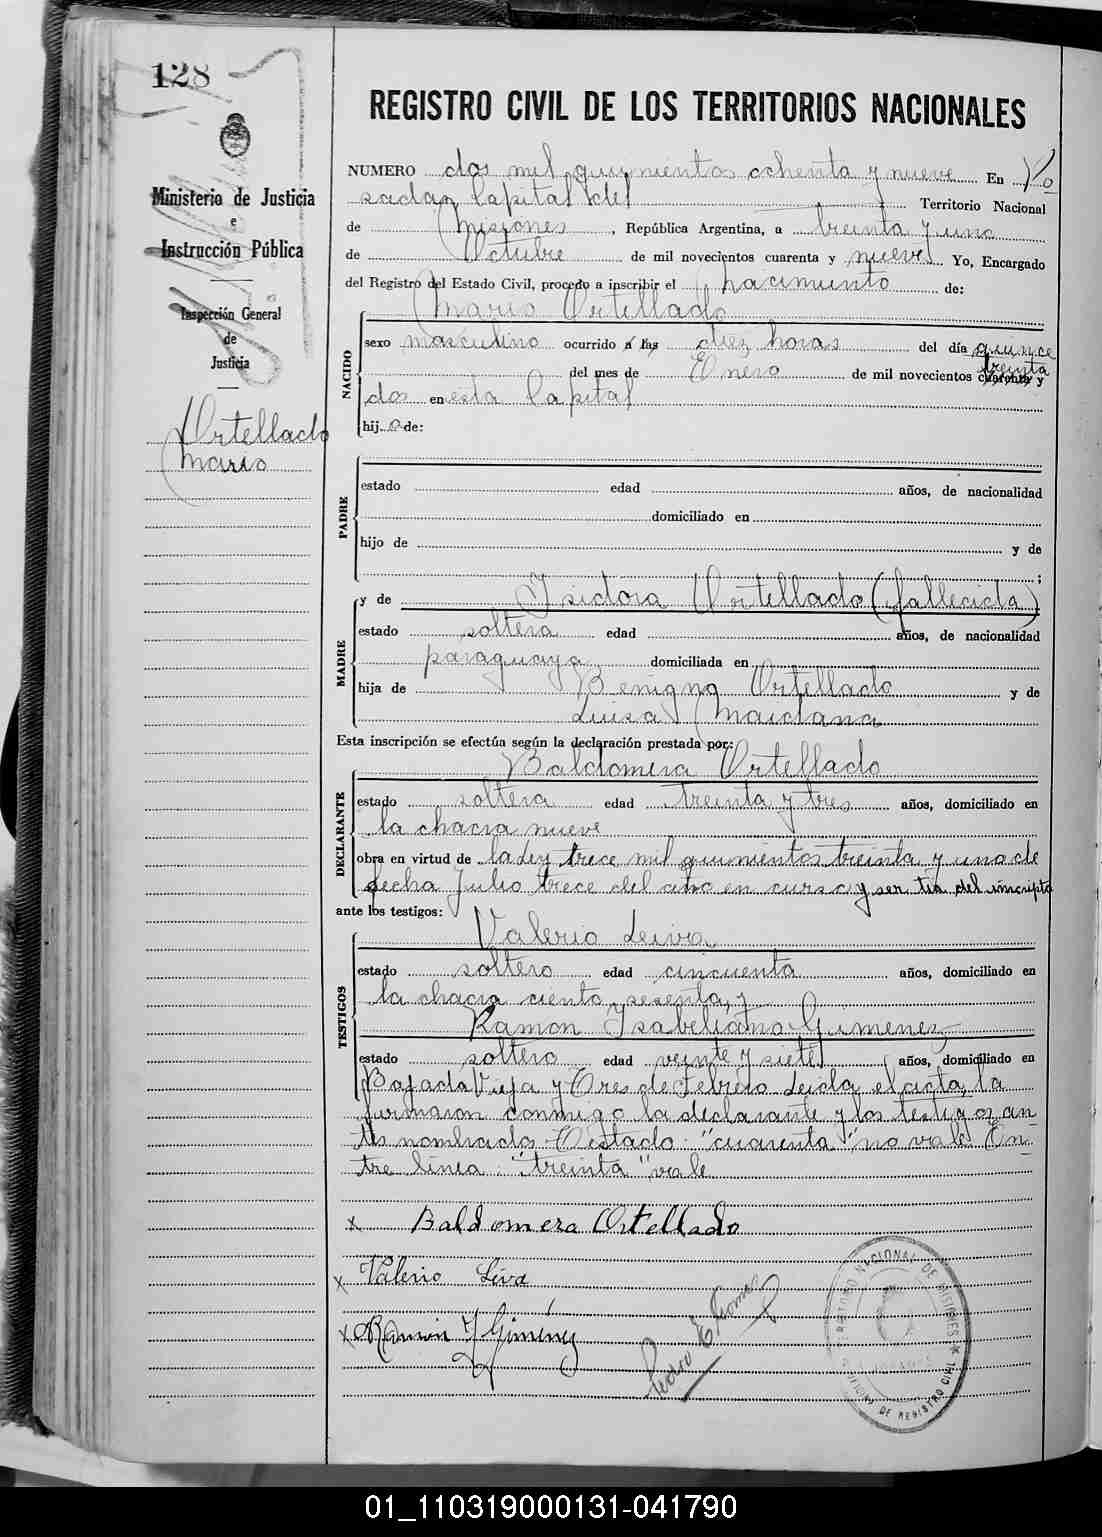 128
REGISTRO CIVIL DE LOS TERRITORIOS NACIONALES
Ministerio de Justicia
e
Instrucción Pública
Inspección General
de
Justicia
Ortellado
Mario
NUMERO dos mil quinientos ochenta y nueve En Po
sadas, Capital del Territorio Nacional
de Misiones, República Argentina, a treinta y uno
de Octubre de mil novecientos cuarenta y nueve Yo, Encargado
del Registro del Estado Civil, procedo a inscribir el nacimiento de:
Mario Ortellado
NACIDO
sexo masculino ocurrido á las diez horas del día quince
treinta
del mes de Enero de mil novecientos cuarenta y
dos en esta Capital
hijo de:
PADRE
estado edad años, de nacionalidad
domiciliado en
hijo de y de
;
MADRE
y de Isidora Ortellado (fallecida)
estado soltera edad años, de nacionalidad
paraguaya domiciliada en
hija de Benigna Ortellado y de
Luisa Maidana
Esta inscripción se efectúa según la declaración prestada por:
Baldomera Ortellado
DECLARANTE
estado soltera edad treinta y tres años, domiciliado en
la chacra nueve
obra en virtud de la Ley trece mil quinientos treinta y uno de
fecha Julio trece del año en curso y ser tia del inscripto
ante los testigos:
Valerio Leiva
TESTIGOS
estado soltero edad cincuenta años, domiciliado en
la chacra ciento sesenta, y
Ramon Isabeliano Gimenez
estado soltero edad veinte y siete años, domiciliado en
Bajada Vieja y Tres de Febrero Leida el acta, la
firmaron conmigo la declarante y los testigos an
tes nombrados. Testado: "cuarenta" no vale. En
tre línea: "treinta" vale
x Baldomera Ortellado
x Valerio Leiva
x Ramón Y Giménez
Pedro E Gomez
TERRITORIO NACIONAL DE MISIONES
OFICINA DE REGISTRO CIVIL
01_110319000131-041790